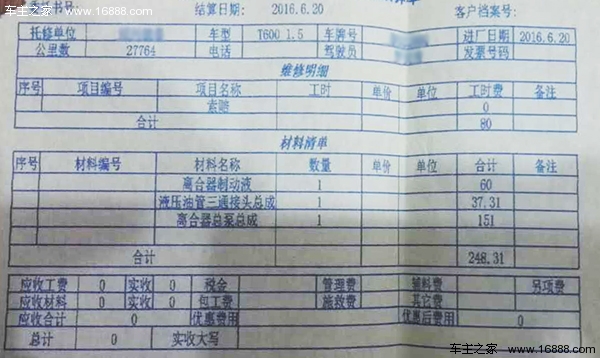 车主之家 www.16888.com
书号: 结算日期: 2016.6.20 客户档案号:
托修单位 车型 T600 1.5 车牌号 进厂日期 2016.6.20
公里数 27764 电话 驾驶员 发票号码
维修明细
序号 项目编号 项目名称 工时 单价 单位 工时费 备注
索赔 0
合计 80
材料清单
序号 材料编号 材料名称 数量 单价 单位 合计 备注
离合器制动液 1 60
液压油管三通接头总成 1 37.31
离合器总泵总成 1 151
合计 248.31
应收工费 0 实收 0 税金 管理费 辅料费 另项费
应收材料 0 实收 0 包工费 施救费 其它费
应收合计 0 优惠费用 优惠后费用 0
总计 0 实收大写
车主之家 www.16888.com